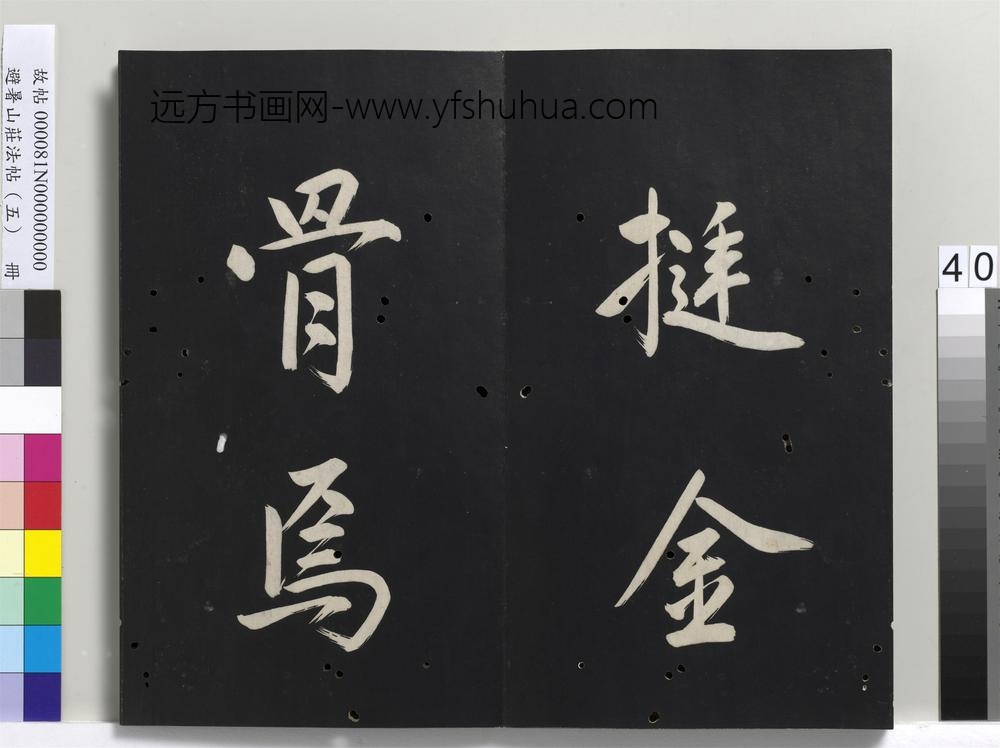 远方书画网-www.yfshuhua.com
故帖 000081N000000000
避暑山莊法帖（五） 冊
挺金
骨焉
40